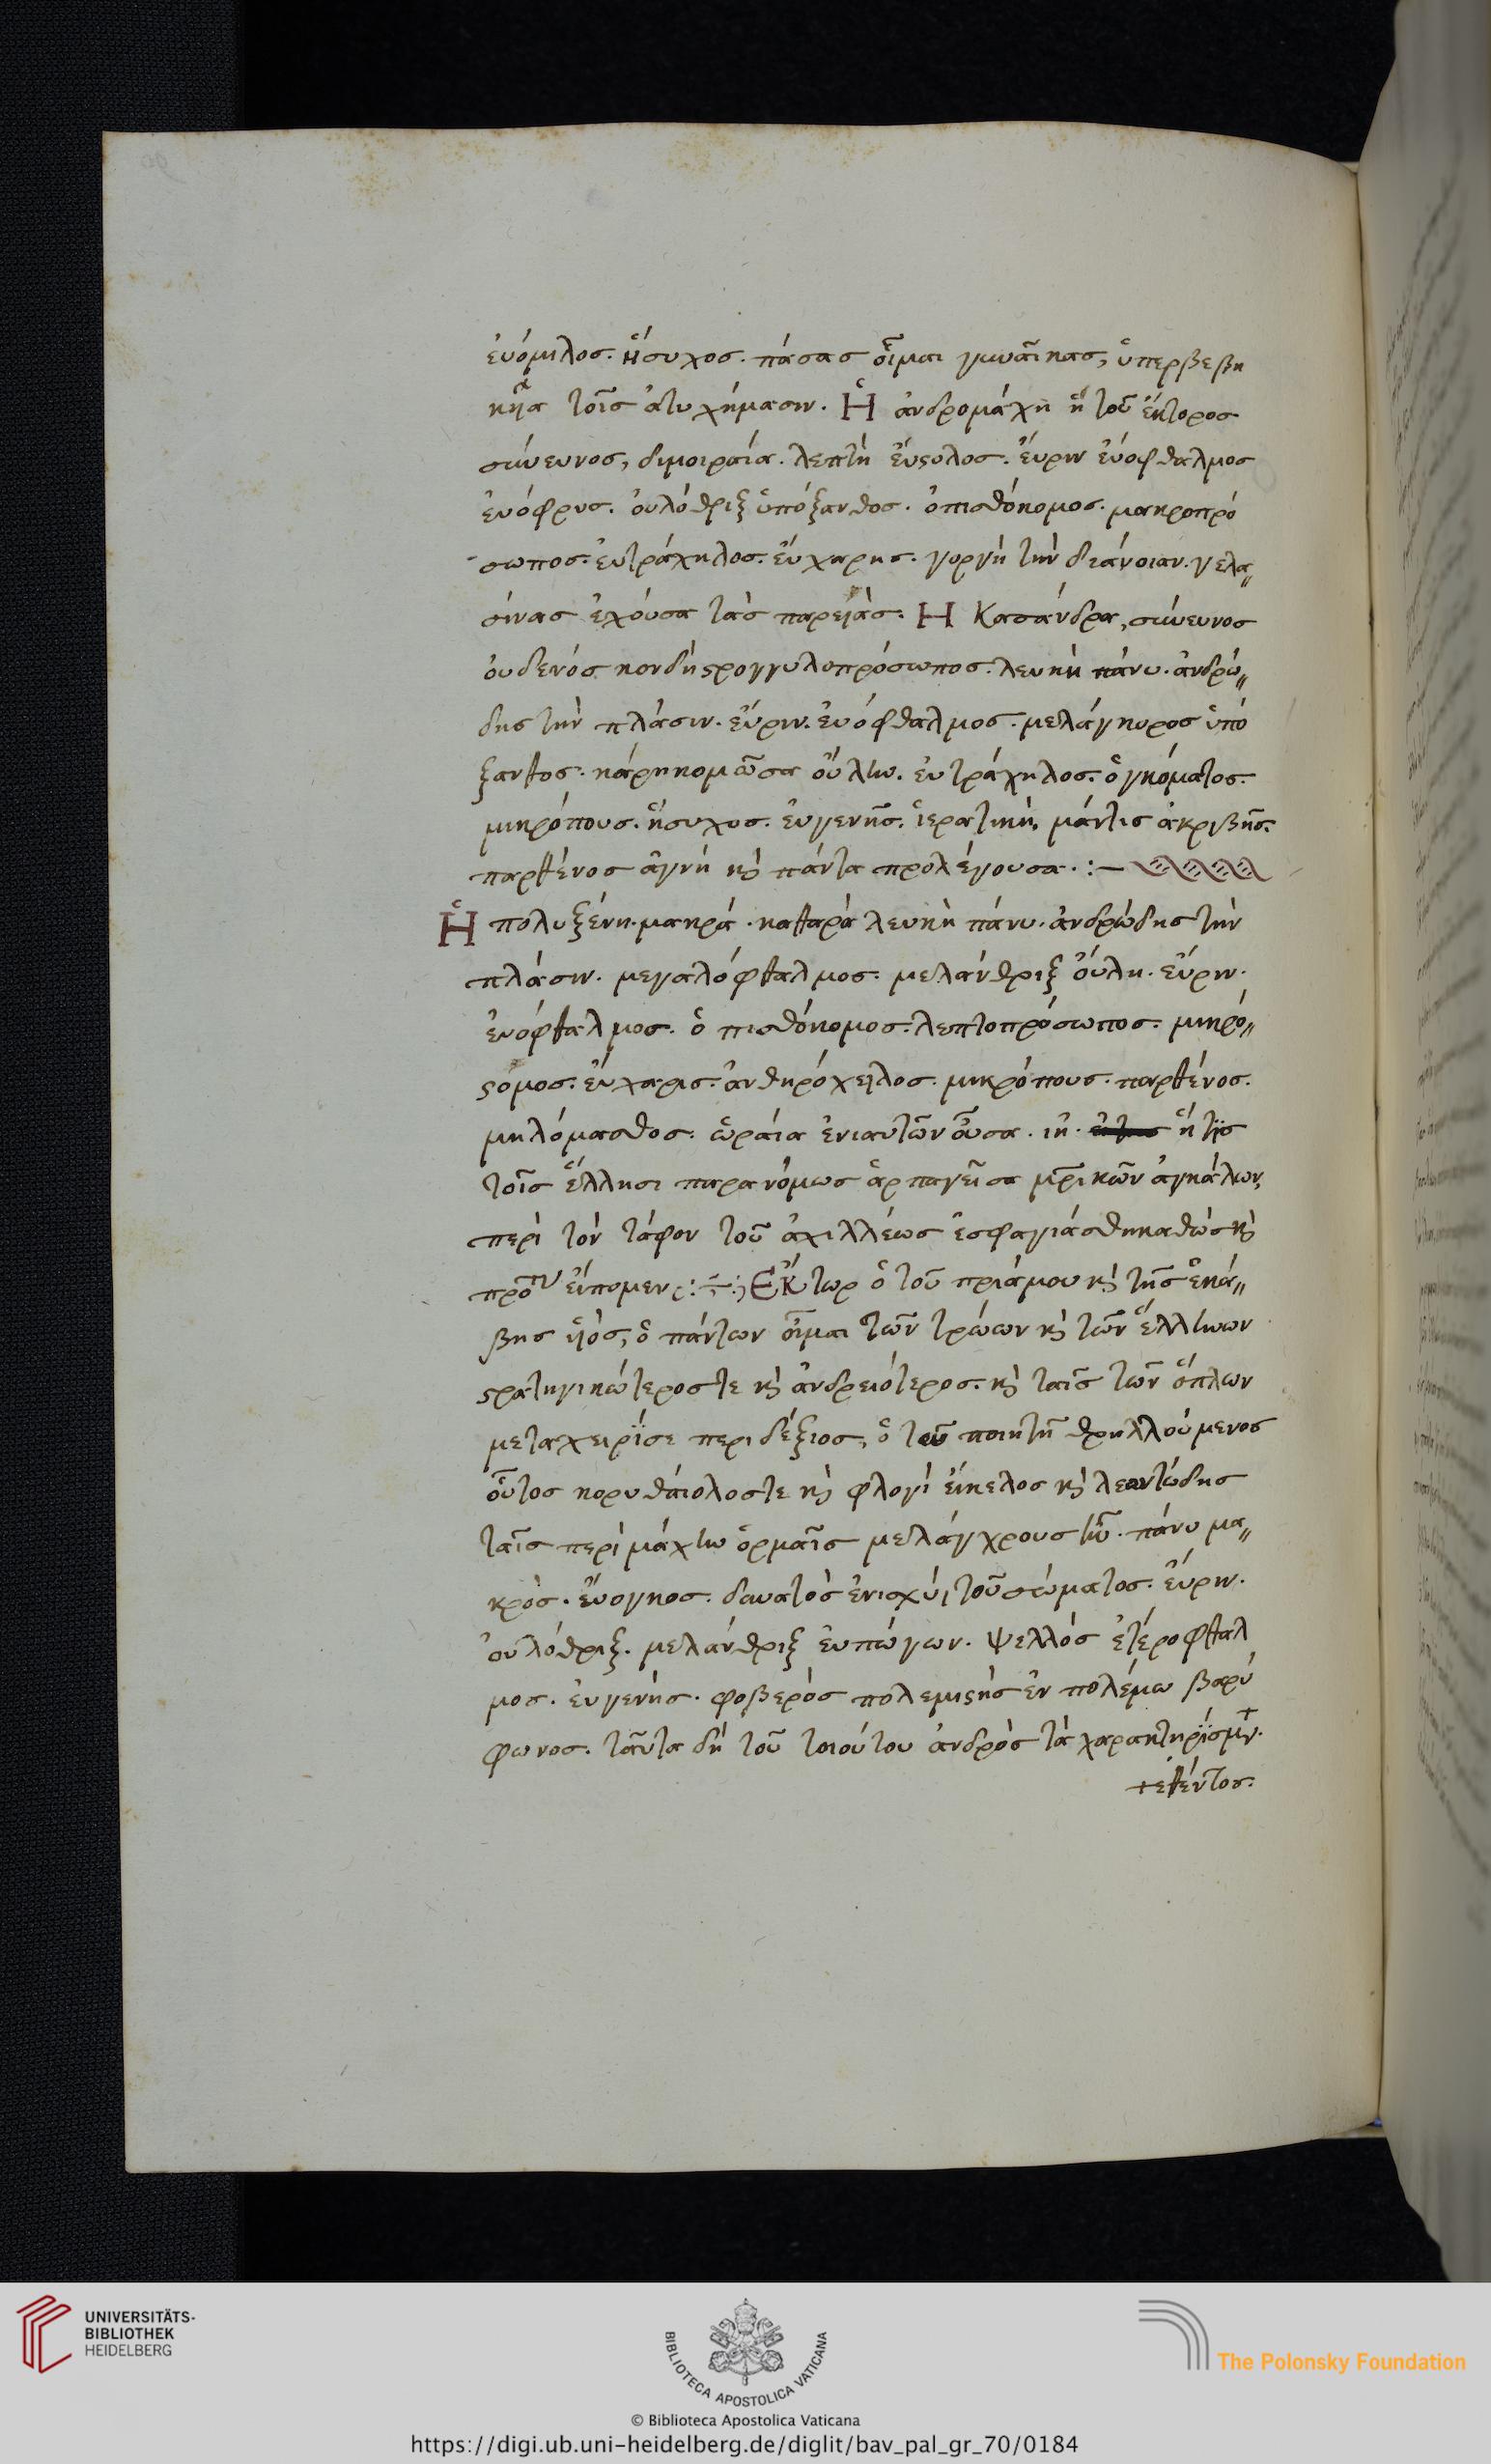 ἐυόμιλος. ἥσυχος. πάσας οἶμαι γυναῖκας, ὑπερβεβη
κῆα τοῖς ἀτυχήμασιν. Ἡ ἀνδρομάχη ἡ τοῦ ἕκτορος
σύνευνος, διμοιραία. λεπτὴ ἔυστολος. ἔυριν ἐυόφθαλμος
ἐυόφρυς. ὀυλόθριξ ὑπόξανθος. ὀπισθόκομος. μακροπρό
σωπος. ἐυτράχηλος. ἔυχαρης. γοργὴ τὴν διάνοιαν. γελα„
σίνας ἐχόυσα τὰς παρειὰς. Η Κασάνδρα, σύνευνος
ὀυδενός κονδὴ στρογγυλοπρόσωπος. λευκὴ πάνυ. ἀνδρώ„
δης τὴν πλάσιν. εὔριν. ἐυόφθαλμος. μελάγκορος ὑπό
ξανθος. κάρη κομῶσα οὔλην. ἐυτράχηλος. ὀγκόματος.
μικρόπους. ἥσυχος. ἐυγενῆς. ἱερατικὴ, μάντις ἀκριβῆς.
παρθένος ἁγνή κὶ πάντα προλέγουσα. :—
Ἡ πολυξένη. μακρά. καθαρὰ λευκὴ πάνυ. ἀνδρώδης τὴν
πλάσιν. μεγαλόφθαλμος. μελάνθριξ ὄυλη. εὔριν.
ἐυόφθαλμος. ὁ πισθόκομος. λεπτοπρόσωπος. μικρό„
στομος. ἔυχαρις. ἀνθηρόχειλος. μικρόπους. παρθένος.
μηλόμασθος. ὡραία ἐνιαυτῶν οὖσα. ιη. ἥ τις
τοῖς ἕλλησι παρανόμως ἁρπαγεῖσα μρικῶν ἀγκάλων,
περὶ τὸν τάφον τοῦ ἀχιλλέως ἐσφαγιάσθη καθὼς κὶ
εἴπομεν :÷: Εκτωρ ὁ τοῦ πριάμου κὶ τῆς ἑκά„
βης ὑιὸς, ὁ πάντων οἶμαι τῶν τρώων κὶ τῶν ἑλλήνων
στρατηγικώτερος τε κὶ ἀνδρειότερος. κὶ ταῖς τῶν ὅπλων
μεταχειρίσε περιδέξιος, ὁ τοῦ ποιητῆ θρηλλούμενος
οὗτος κορυθάιολος τε κὶ φλογὶ ἐίκελος κὶ λεοντώδης
ταῖς περὶ μάχην ὁρμαῖς μελάγχρους ἦν. πάνυ μα„
κρὸς. ἔυογκος. δυνατὸς ἐν ισχύι τοῦ σώματος. ἔυριν.
ὀυλόθριξ. μελάνθριξ ἐυπώγων. ψελλός ἑτέροφθαλ
μος. ἐυγενὴς. φοβερὸς πολεμιστὴς ἐν πολέμω βαρύ
φωνος. ταῦτα δὴ τοῦ τοιούτου ἀνδρὸς τὰ
τεθέντος.
UNIVERSITÄTS-
BIBLIOTHEK
HEIDELBERG
BIBLIOTECA APOSTOLICA VATICANA
The Polonsky Foundation
© Biblioteca Apostolica Vaticana
https://digi.ub.uni-heidelberg.de/diglit/bav_pal_gr_70/0184